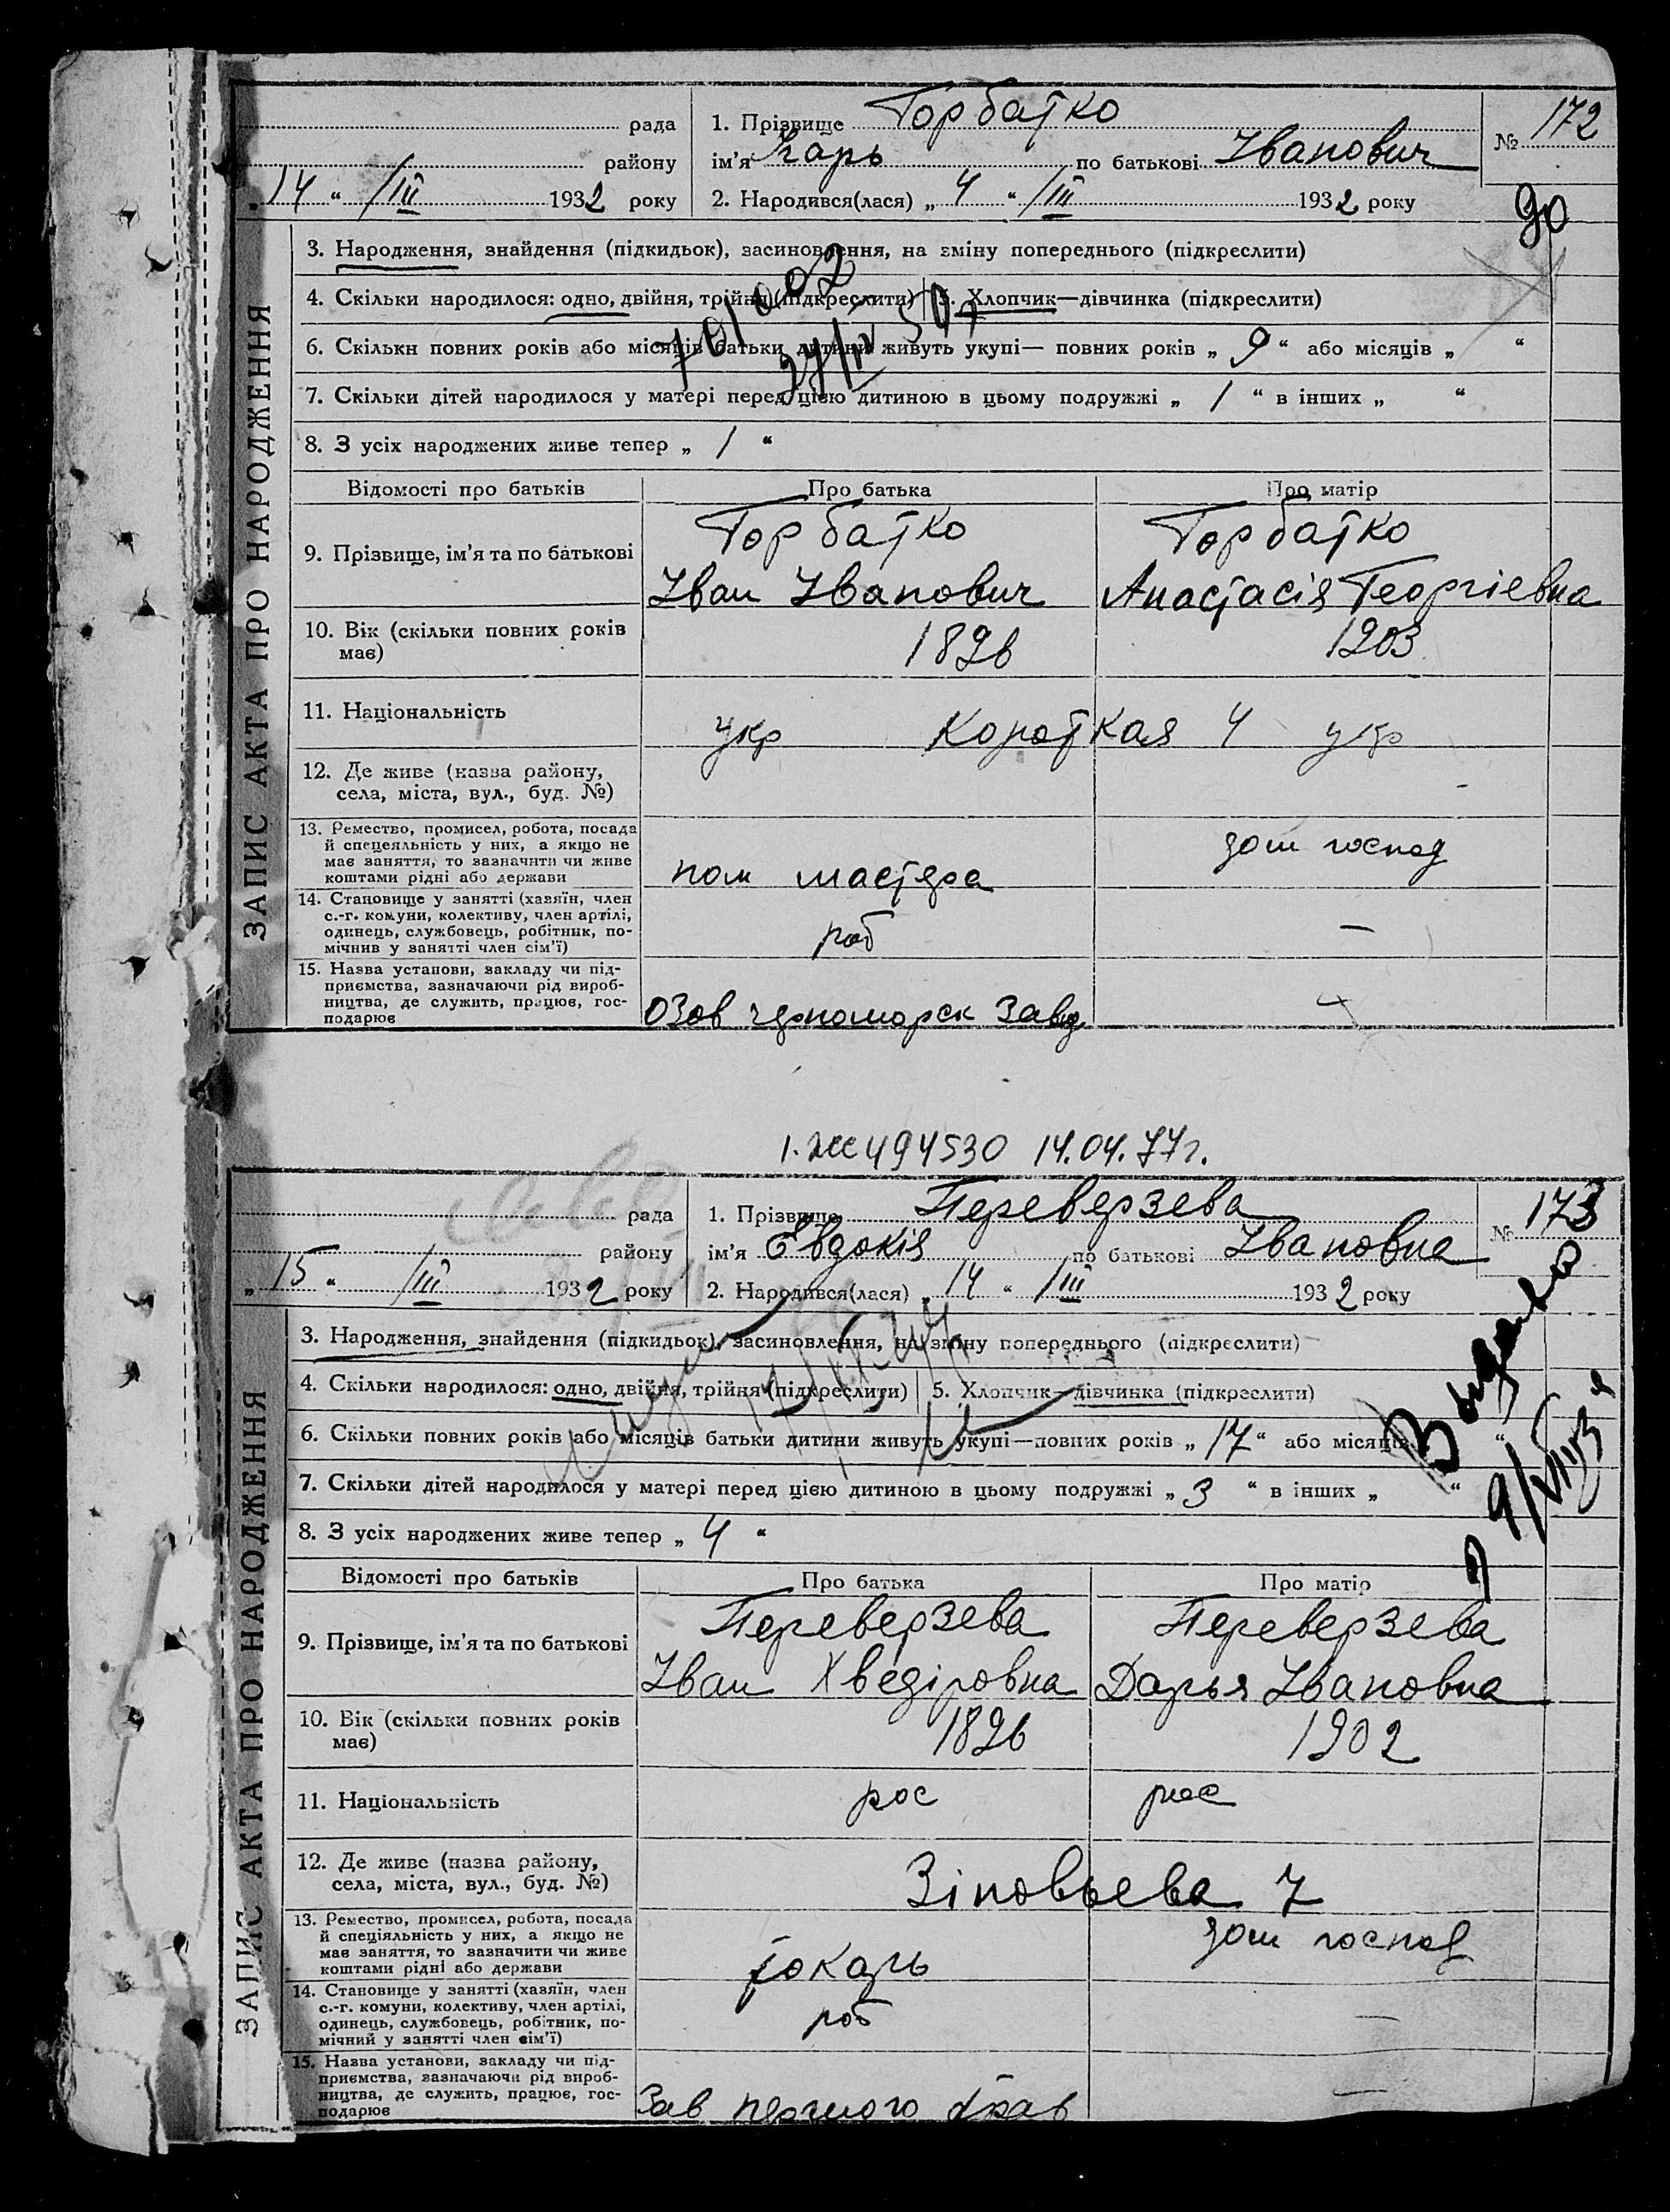 рада
району
„ 14 “ /III 1932 року
1. Прізвище Горбатко
ім’я Ігарь по батькові Іванович
2. Народився(лася) „ 4 “ /III 1932 року
№ 172
90
ЗАПИС АКТА ПРО НАРОДЖЕННЯ
3. Народження, знайдення (підкидьок), засиновлення, на зміну попереднього (підкреслити)
4. Скільки народилося: одно, двійня, трійня (підкреслити)
5. Хлопчик—дівчинка (підкреслити)
6. Скількн повних років або місяців батьки дитини живуть укупі— повних років „ 9 “ або місяців „ “
7. Скільки дітей народилося у матері перед цією дитиною в цьому подружжі „ 1 “ в інших „ “
8. З усіх народжених живе тепер „ 1 “
Відомості про батьків Про батька Про матір
9. Прізвище, ім’я та по батькові
Горбатко Горбатко
Іван Іванович Анастасія Георгіевна
10. Вік (скільки повних років
має)
1896 1903
11. Національність
укр Короткая 4 укр
12. Де живе (назва району,
села, міста, вул., буд. №)
13. Ремество, промисел, робота, посада
й спецеяльність у них, а якщо не
має заняття, то зазначити чи живе
коштами рідні або держави
пом мастера дом господ
14. Становище у занятті (хазяїн, член
с.-г. комуни, колективу, член артілі,
одинець, службовець, робітник, по-
мічнив у занятті член сім’ї)
роб —
15. Назва установи, закладу чи під-
приємства, зазначаючи рід вироб-
ництва, де служить, працює, гос-
подарює
Озов черноморск Завод
1. ЖС 494530 14.04.77г.
рада
району
„ 15 “ /III 1932 року
1. Прізвище Переверзева
ім’я Євдокія по батькові Івановна
2. Народився(лася) „ 14 “ /III 1932 року
№ 173
Выдано
ЗАПИС АКТА ПРО НАРОДЖЕННЯ
3. Народження, знайдення (підкидьок), засиновлення, на зміну попереднього (підкреслити)
4. Скільки народилося: одно, двійня, трійня (підкреслити)
5. Хлопчик—дівчинка (підкреслити)
6. Скільки повних років або місяців батьки дитини живуть укупі—повних років „ 17 “ або місяців „ “
7. Скільки дітей народилося у матері перед цією дитиною в цьому подружжі „ 3 “ в інших „ “
8. З усіх народжених живе тепер „ 4 “
Відомості про батьків Про батька Про матір
9. Прізвище, ім’я та по батькові
Переверзева Переверзева
Іван Хведіровна Дарья Івановна
10. Вік (скільки повних років
має)
1896 1902
11. Національність
рос рос
12. Де живе (назва району,
села, міста, вул., буд. №)
Зіновьева 7
13. Ремество, промисел, робота, посада
й спеціяльність у них, а якщо не
має заняття, то зазначити чи живе
коштами рідні або держави
токарь дом господ
14. Становище у занятті (хазяїн, член
с.-г. комуни, колективу, член артілі,
одинець, службовець, робітник, по-
мічний у занятті член сім’ї)
роб —
15. Назва установи, закладу чи під-
приємства, зазначаючи рід вироб-
ництва, де служить, працює, гос-
подарює
Зав першого —